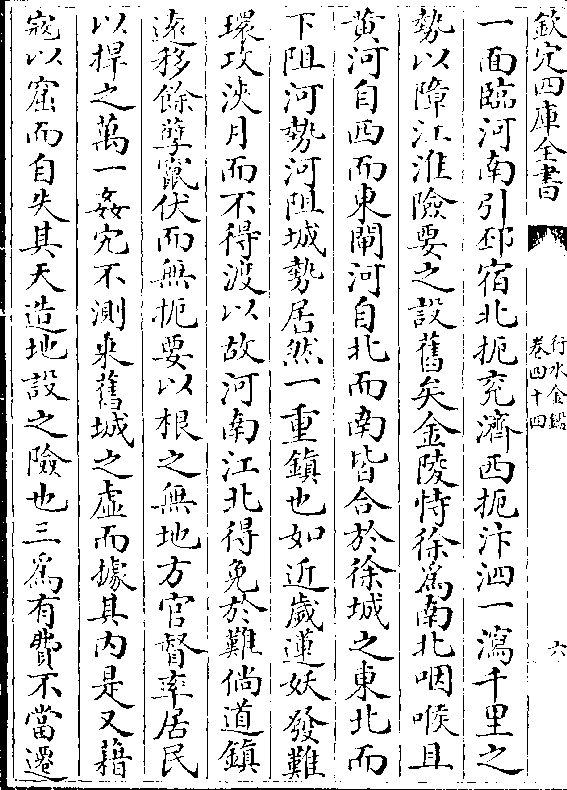 欽定四庫全書
行水金鑑
卷四十四
六
一面臨河南引邳宿北扼兖濟西扼汴泗一瀉千里之
勢以障江淮險要之設舊矣金陵恃徐為南北咽喉且
黄河自西而東閘河自北而南皆合於徐城之東北而
下阻河勢河阻城勢居然一重鎮也如近歲蓮妖發難
環攻浹月而不得渡以故河南江北得免於難倘道鎮
遠移餘孽竄伏而無扼要以根之無地方官督率居民
以捍之萬一姦宄不測乗舊城之虚而據其内是又藉
宼以窟而自失其天造地設之險也三為有費不當遷